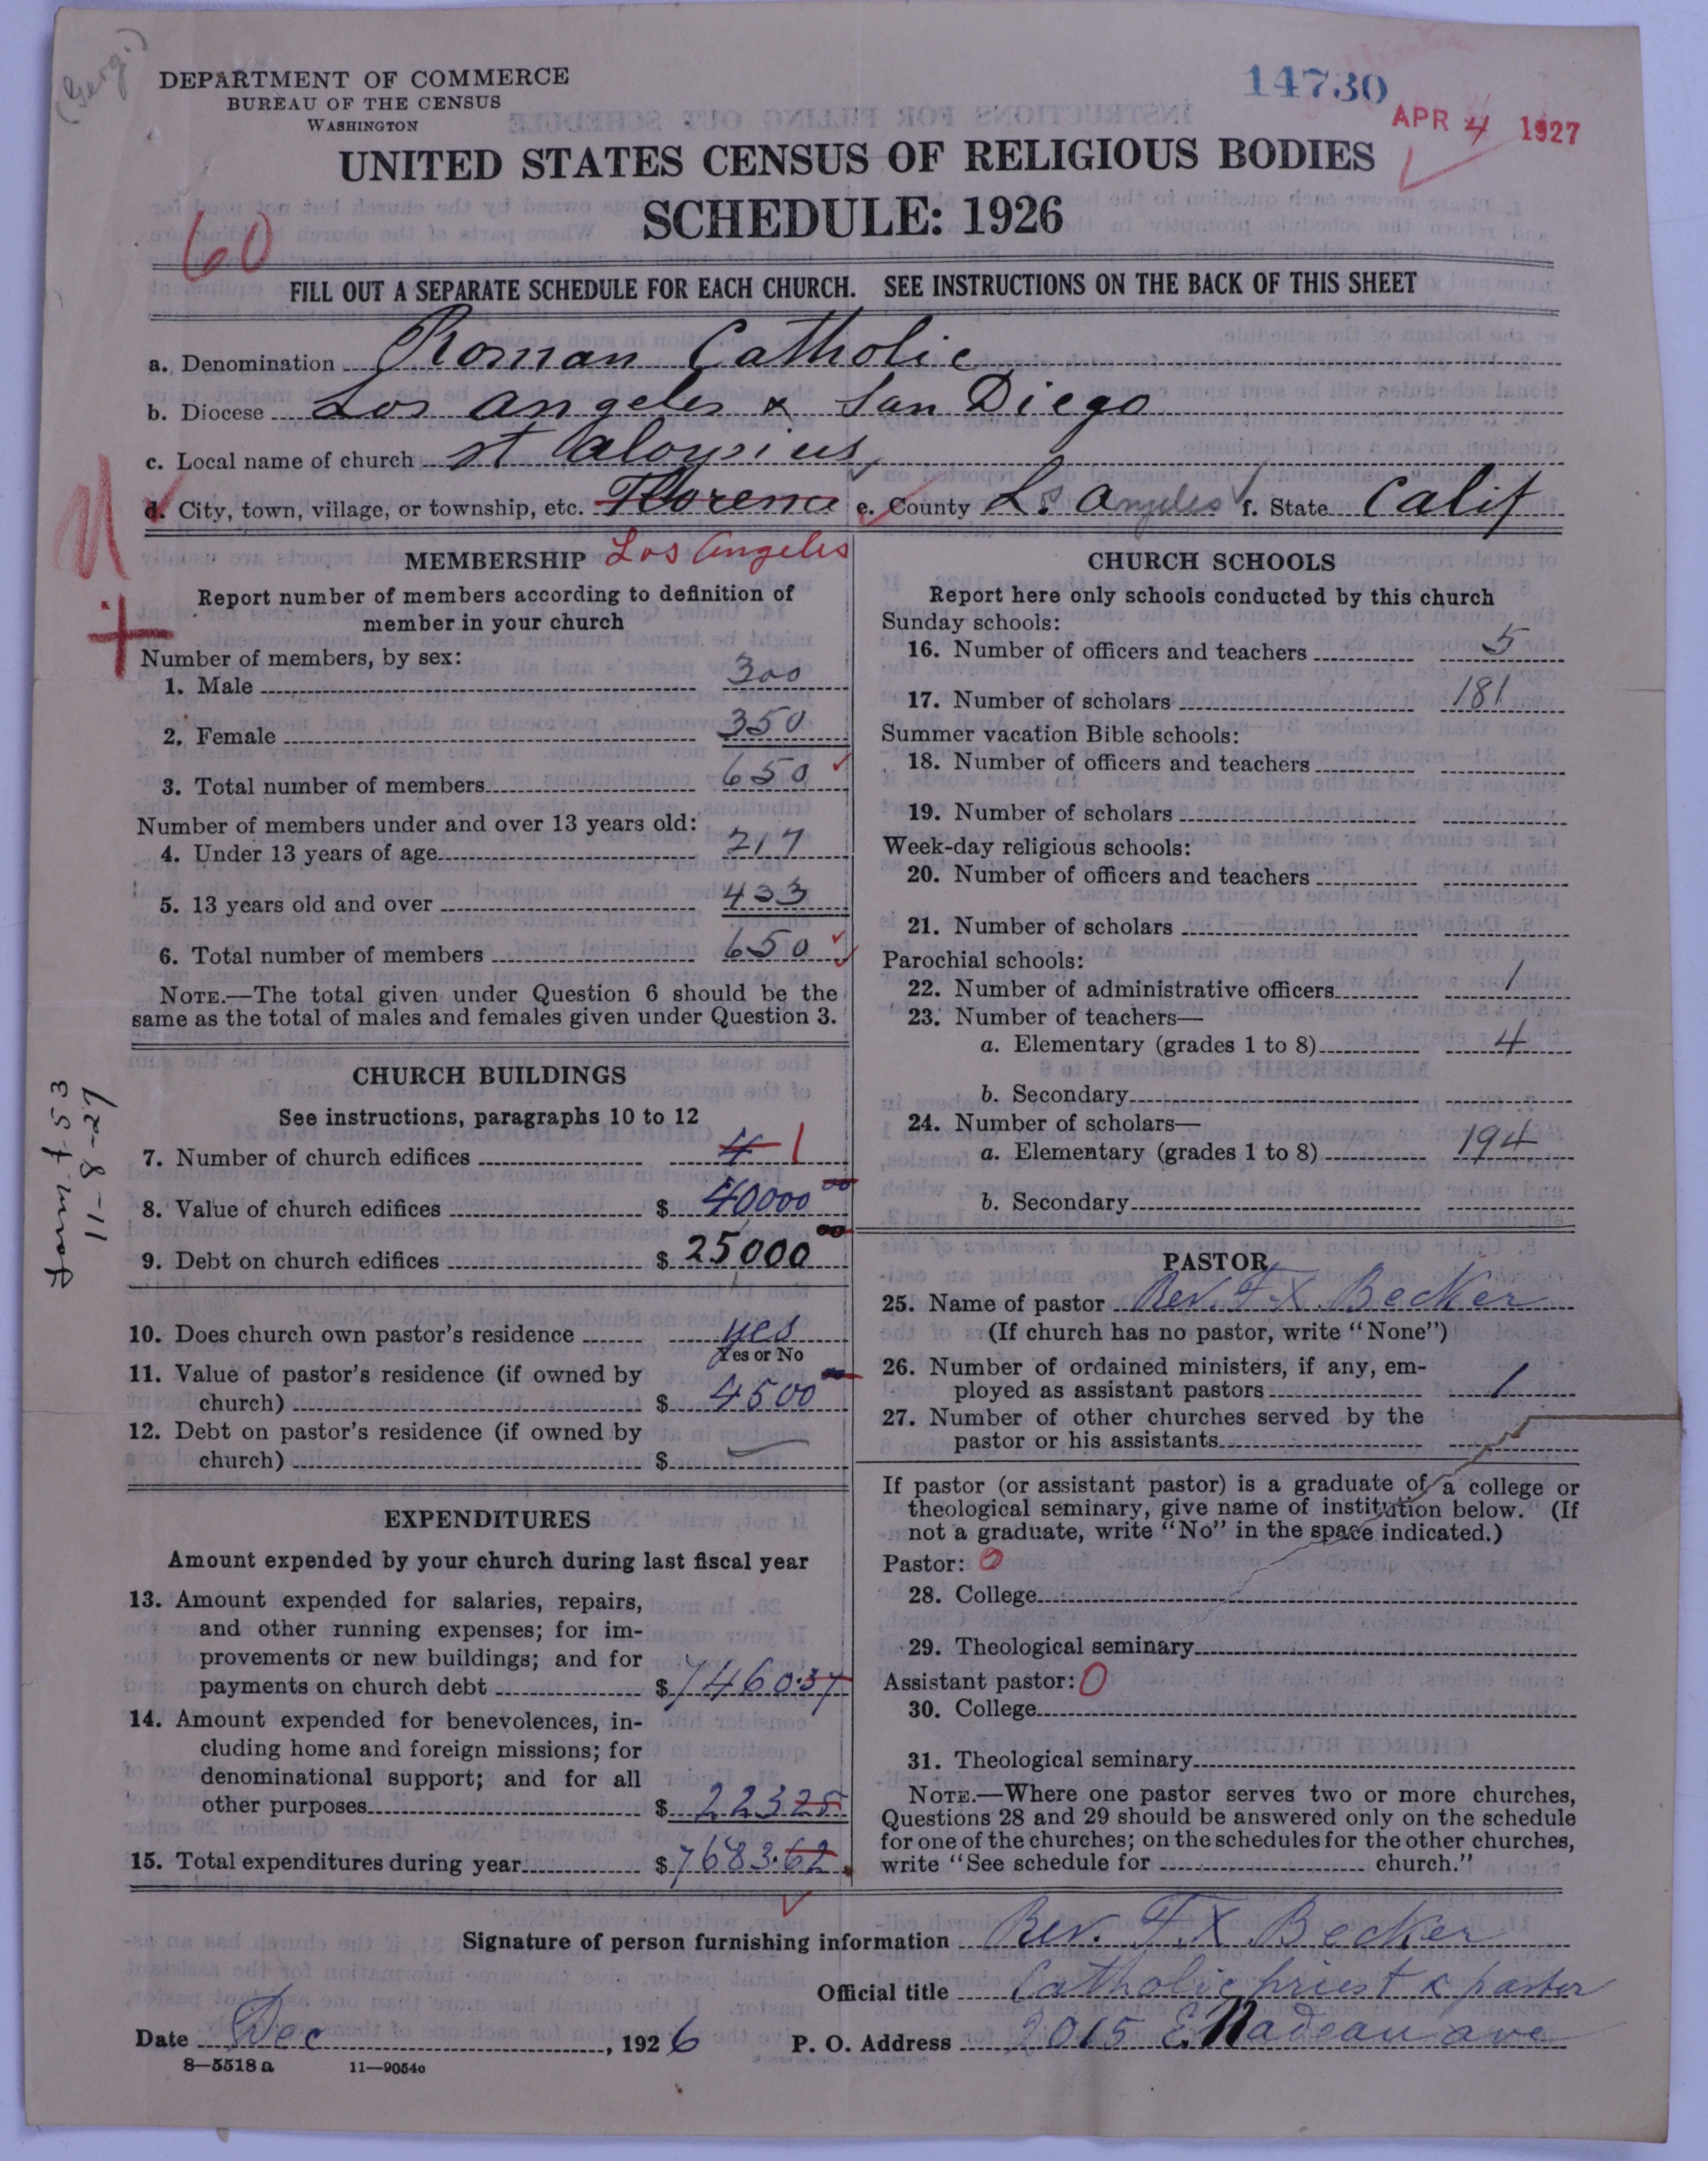 (Gerg.)
DEPARTMENT OF COMMERCE
BUREAU OF THE CENSUS
WASHINGTON
14730
APR 4 1927
UNITED STATES CENSUS OF RELIGIOUS BODIES
SCHEDULE: 1926
60
FILL OUT A SEPARATE SCHEDULE FOR EACH CHURCH. SEE INSTRUCTIONS ON THE BACK OF THIS SHEET
a. Denomination Roman Catholic
b. Diocese Los Angeles & San Diego
c. Local name of church St Aloysius
d. City, town, village, or township, etc. Florence e. County L. Angeles f. State Calif
Los Angeles
MEMBERSHIP
Report number of members according to definition of
member in your church
Number of members, by sex:
1. Male 300
2. Female 350
3. Total number of members 650
Number of members under and over 13 years old:
4. Under 13 years of age 217
5. 13 years old and over 433
6. Total number of members 650
NOTE.—The total given under Question 6 should be the
same as the total of males and females given under Question 3.
Form 753
11-8-27
CHURCH BUILDINGS
See instructions, paragraphs 10 to 12
7. Number of church edifices 4 1
8. Value of church edifices $ 40000 00
9. Debt on church edifices $ 25,000 00
10. Does church own pastor's residence yes
Yes or No
11. Value of pastor's residence (if owned by
church) $ 4500 00
12. Debt on pastor's residence (if owned by
church) $ —
EXPENDITURES
Amount expended by your church during last fiscal year
13. Amount expended for salaries, repairs,
and other running expenses; for im-
provements or new buildings; and for
payments on church debt $ 7460.37
14. Amount expended for benevolences, in-
cluding home and foreign missions; for
denominational support; and for all
other purposes $ 22325
15. Total expenditures during year $ 7683.62
CHURCH SCHOOLS
Report here only schools conducted by this church
Sunday schools:
16. Number of officers and teachers 5
17. Number of scholars 181
Summer vacation Bible schools:
18. Number of officers and teachers
19. Number of scholars
Week-day religious schools:
20. Number of officers and teachers
21. Number of scholars
Parochial schools:
22. Number of administrative officers 1
23. Number of teachers—
a. Elementary (grades 1 to 8) 4
b. Secondary
24. Number of scholars—
a. Elementary (grades 1 to 8) 194
b. Secondary
PASTOR
25. Name of pastor Rev. F. X. Becker
(If church has no pastor, write "None")
26. Number of ordained ministers, if any, em-
ployed as assistant pastors 1
27. Number of other churches served by the
pastor or his assistants
If pastor (or assistant pastor) is a graduate of a college or
theological seminary, give name of institution below. (If
not a graduate, write "No" in the space indicated.)
Pastor: 0
28. College
29. Theological seminary
Assistant pastor: 0
30. College
31. Theological seminary
NOTE.—Where one pastor serves two or more churches,
Questions 28 and 29 should be answered only on the schedule
for one of the churches; on the schedules for the other churches,
write "See schedule for church."
Signature of person furnishing information Rev. F. X. Becker
Official title Catholic priest & pastor
Date Dec, 1926 P. O. Address 2015 E. Nadeau ave
8—5518 a 11—9054c